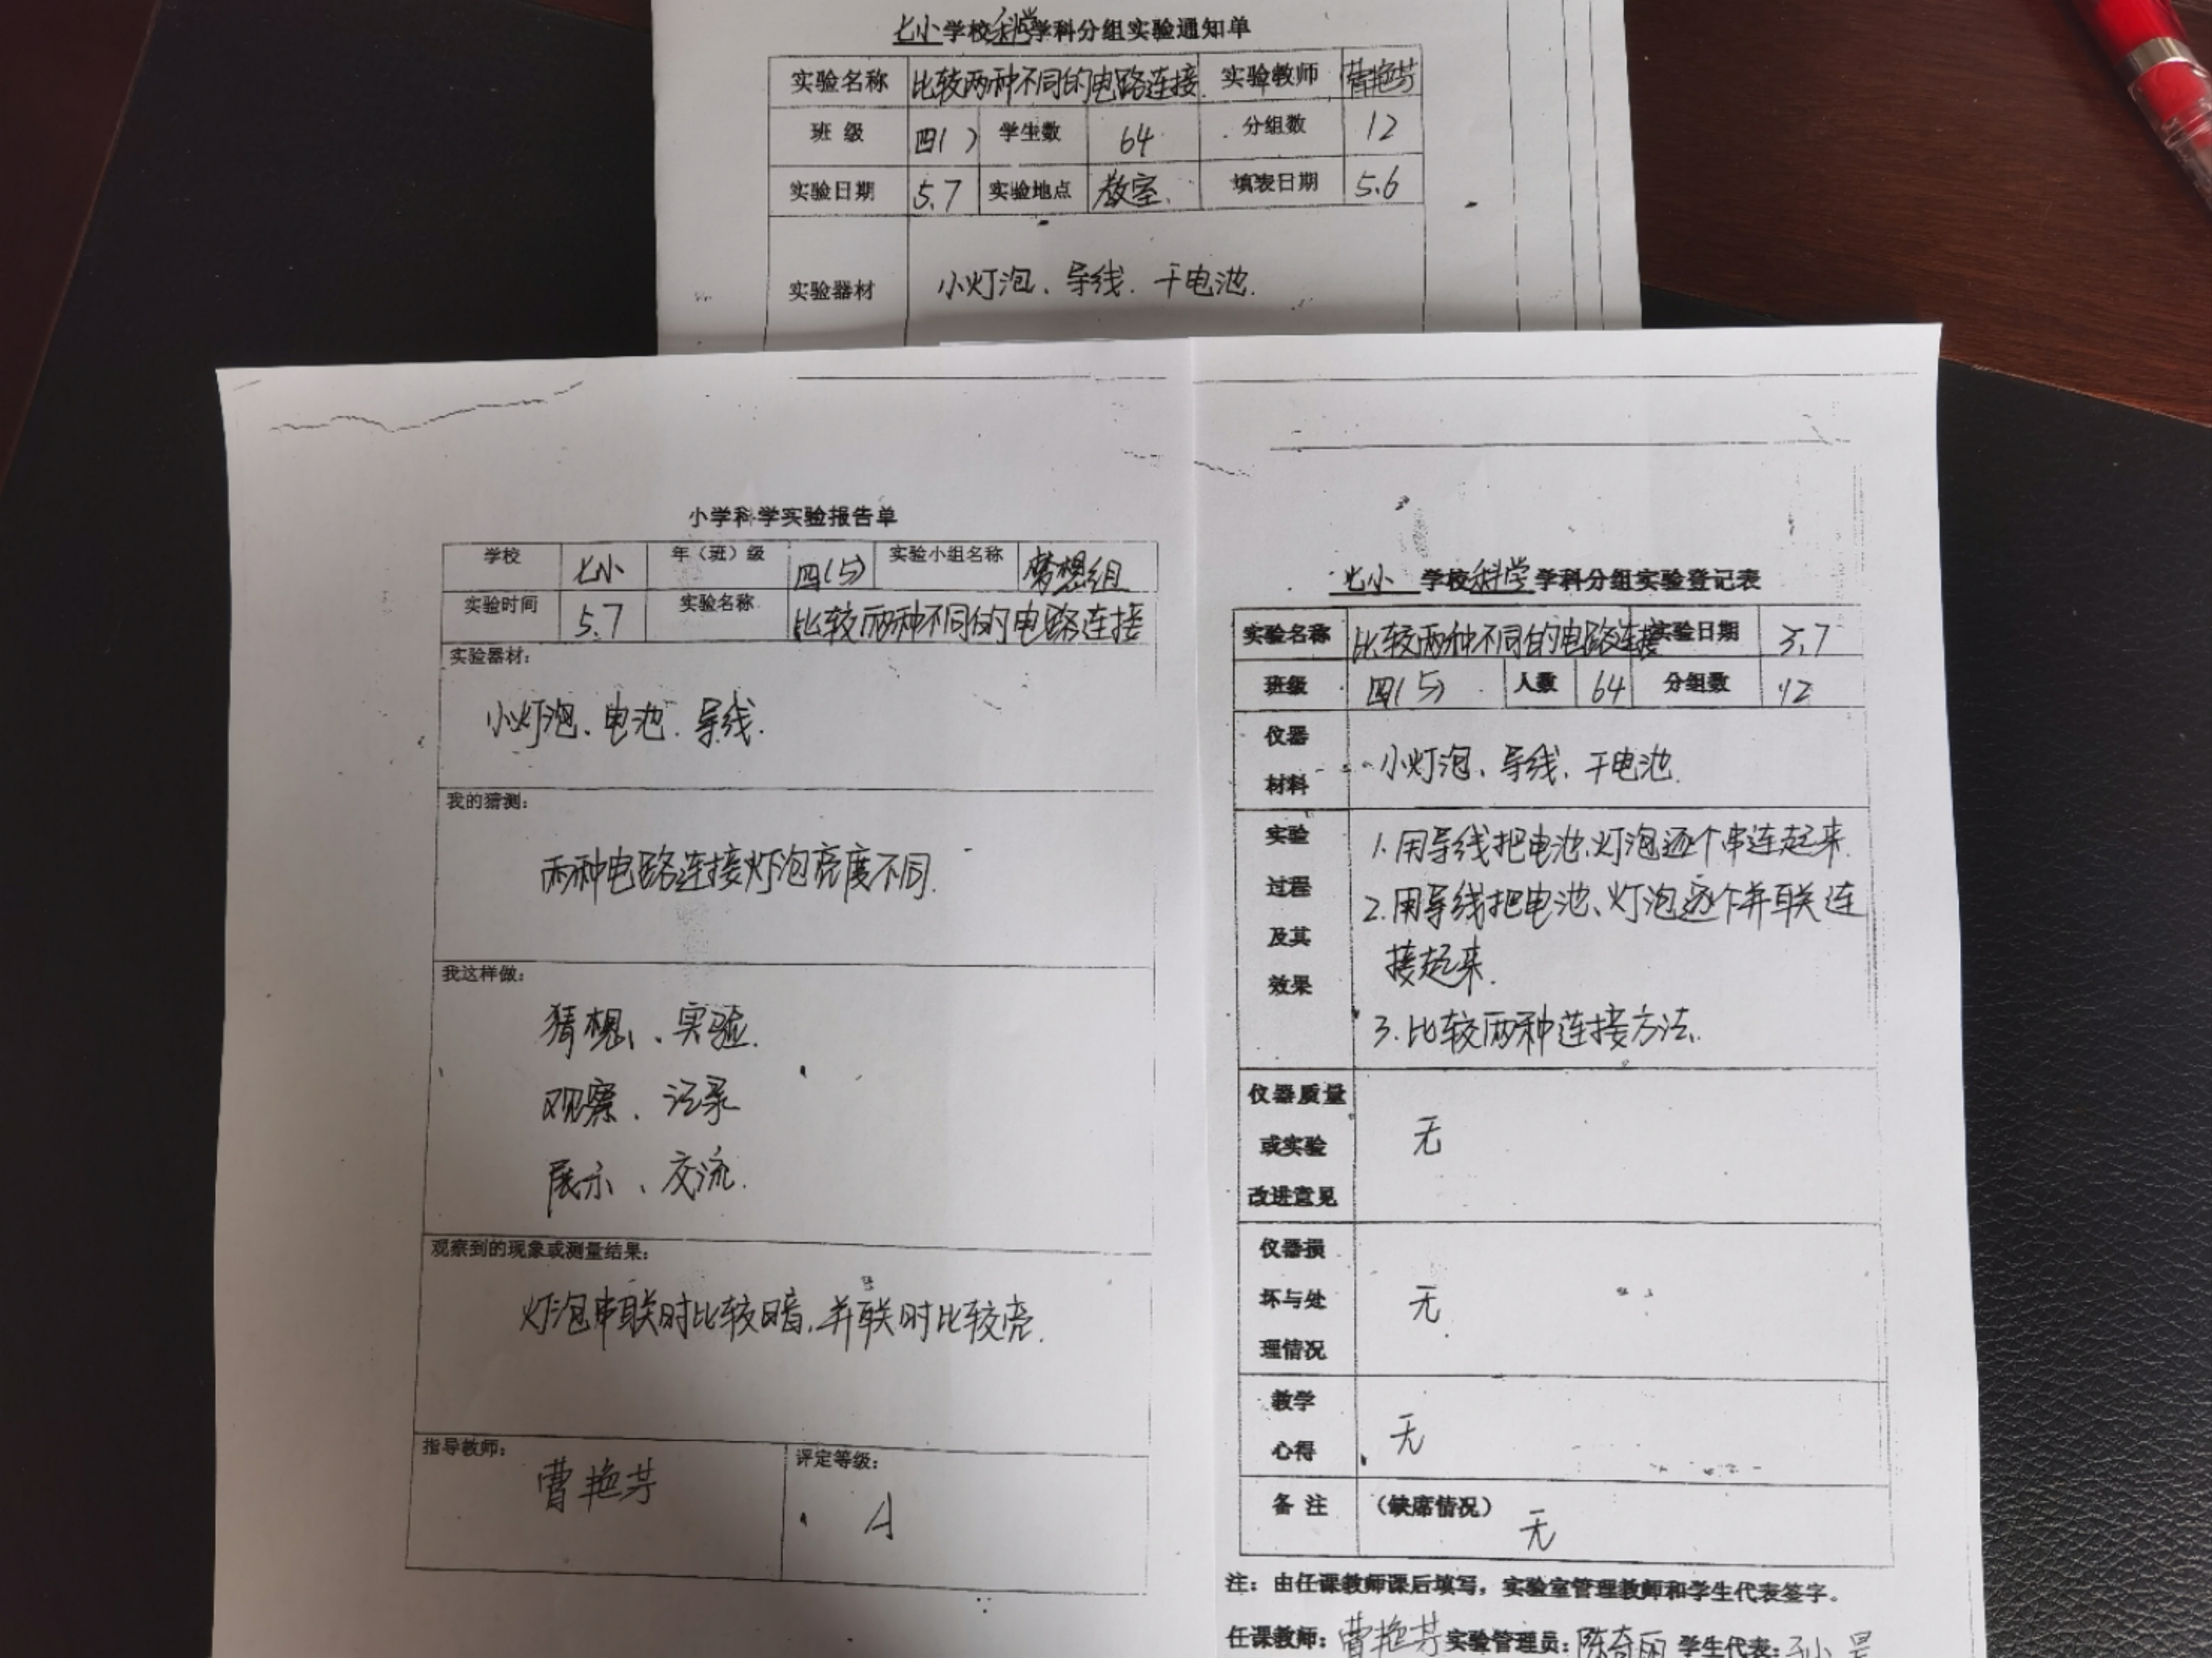 七小学校科学学科分组实验通知单
实验名称 比较两种不同的电路连接. 实验教师 曹艳芳
班 级 四( ) 学生数 64 分组数 12
实验日期 5.7 实验地点 教室. 填表日期 5.6
实验器材 小灯泡、导线.干电池.
小学科学实验报告单
学校 七小 年（班）级 四(5) 实验小组名称 梦想组
实验时间 5.7 实验名称 比较两种不同的电路连接
实验器材：
小灯泡、电池.导线.
我的猜测：
两种电路连接灯泡亮度不同.
我这样做：
猜想、实验.
观察、记录
展示、交流.
观察到的现象或测量结果：
灯泡串联时比较暗,并联时比较亮.
指导教师： 曹艳芳 评定等级： A
七小 学校科学学科分组实验登记表
实验名称 比较两种不同的电路连接 实验日期 5.7
班级 四(5) 人数 64 分组数 12
仪器材料 小灯泡、导线、干电池.
实验过程及其效果
1.用导线把电池、灯泡逐个串连起来.
2.用导线把电池、灯泡逐个并联连
接起来.
3.比较两种连接方法.
仪器质量或实验改进意见 无
仪器损坏与处理情况 无
教学心得 无
备 注 （缺席情况） 无
注：由任课教师课后填写，实验室管理教师和学生代表签字。
任课教师：曹艳芳 实验管理员：陈奇丽 学生代表：